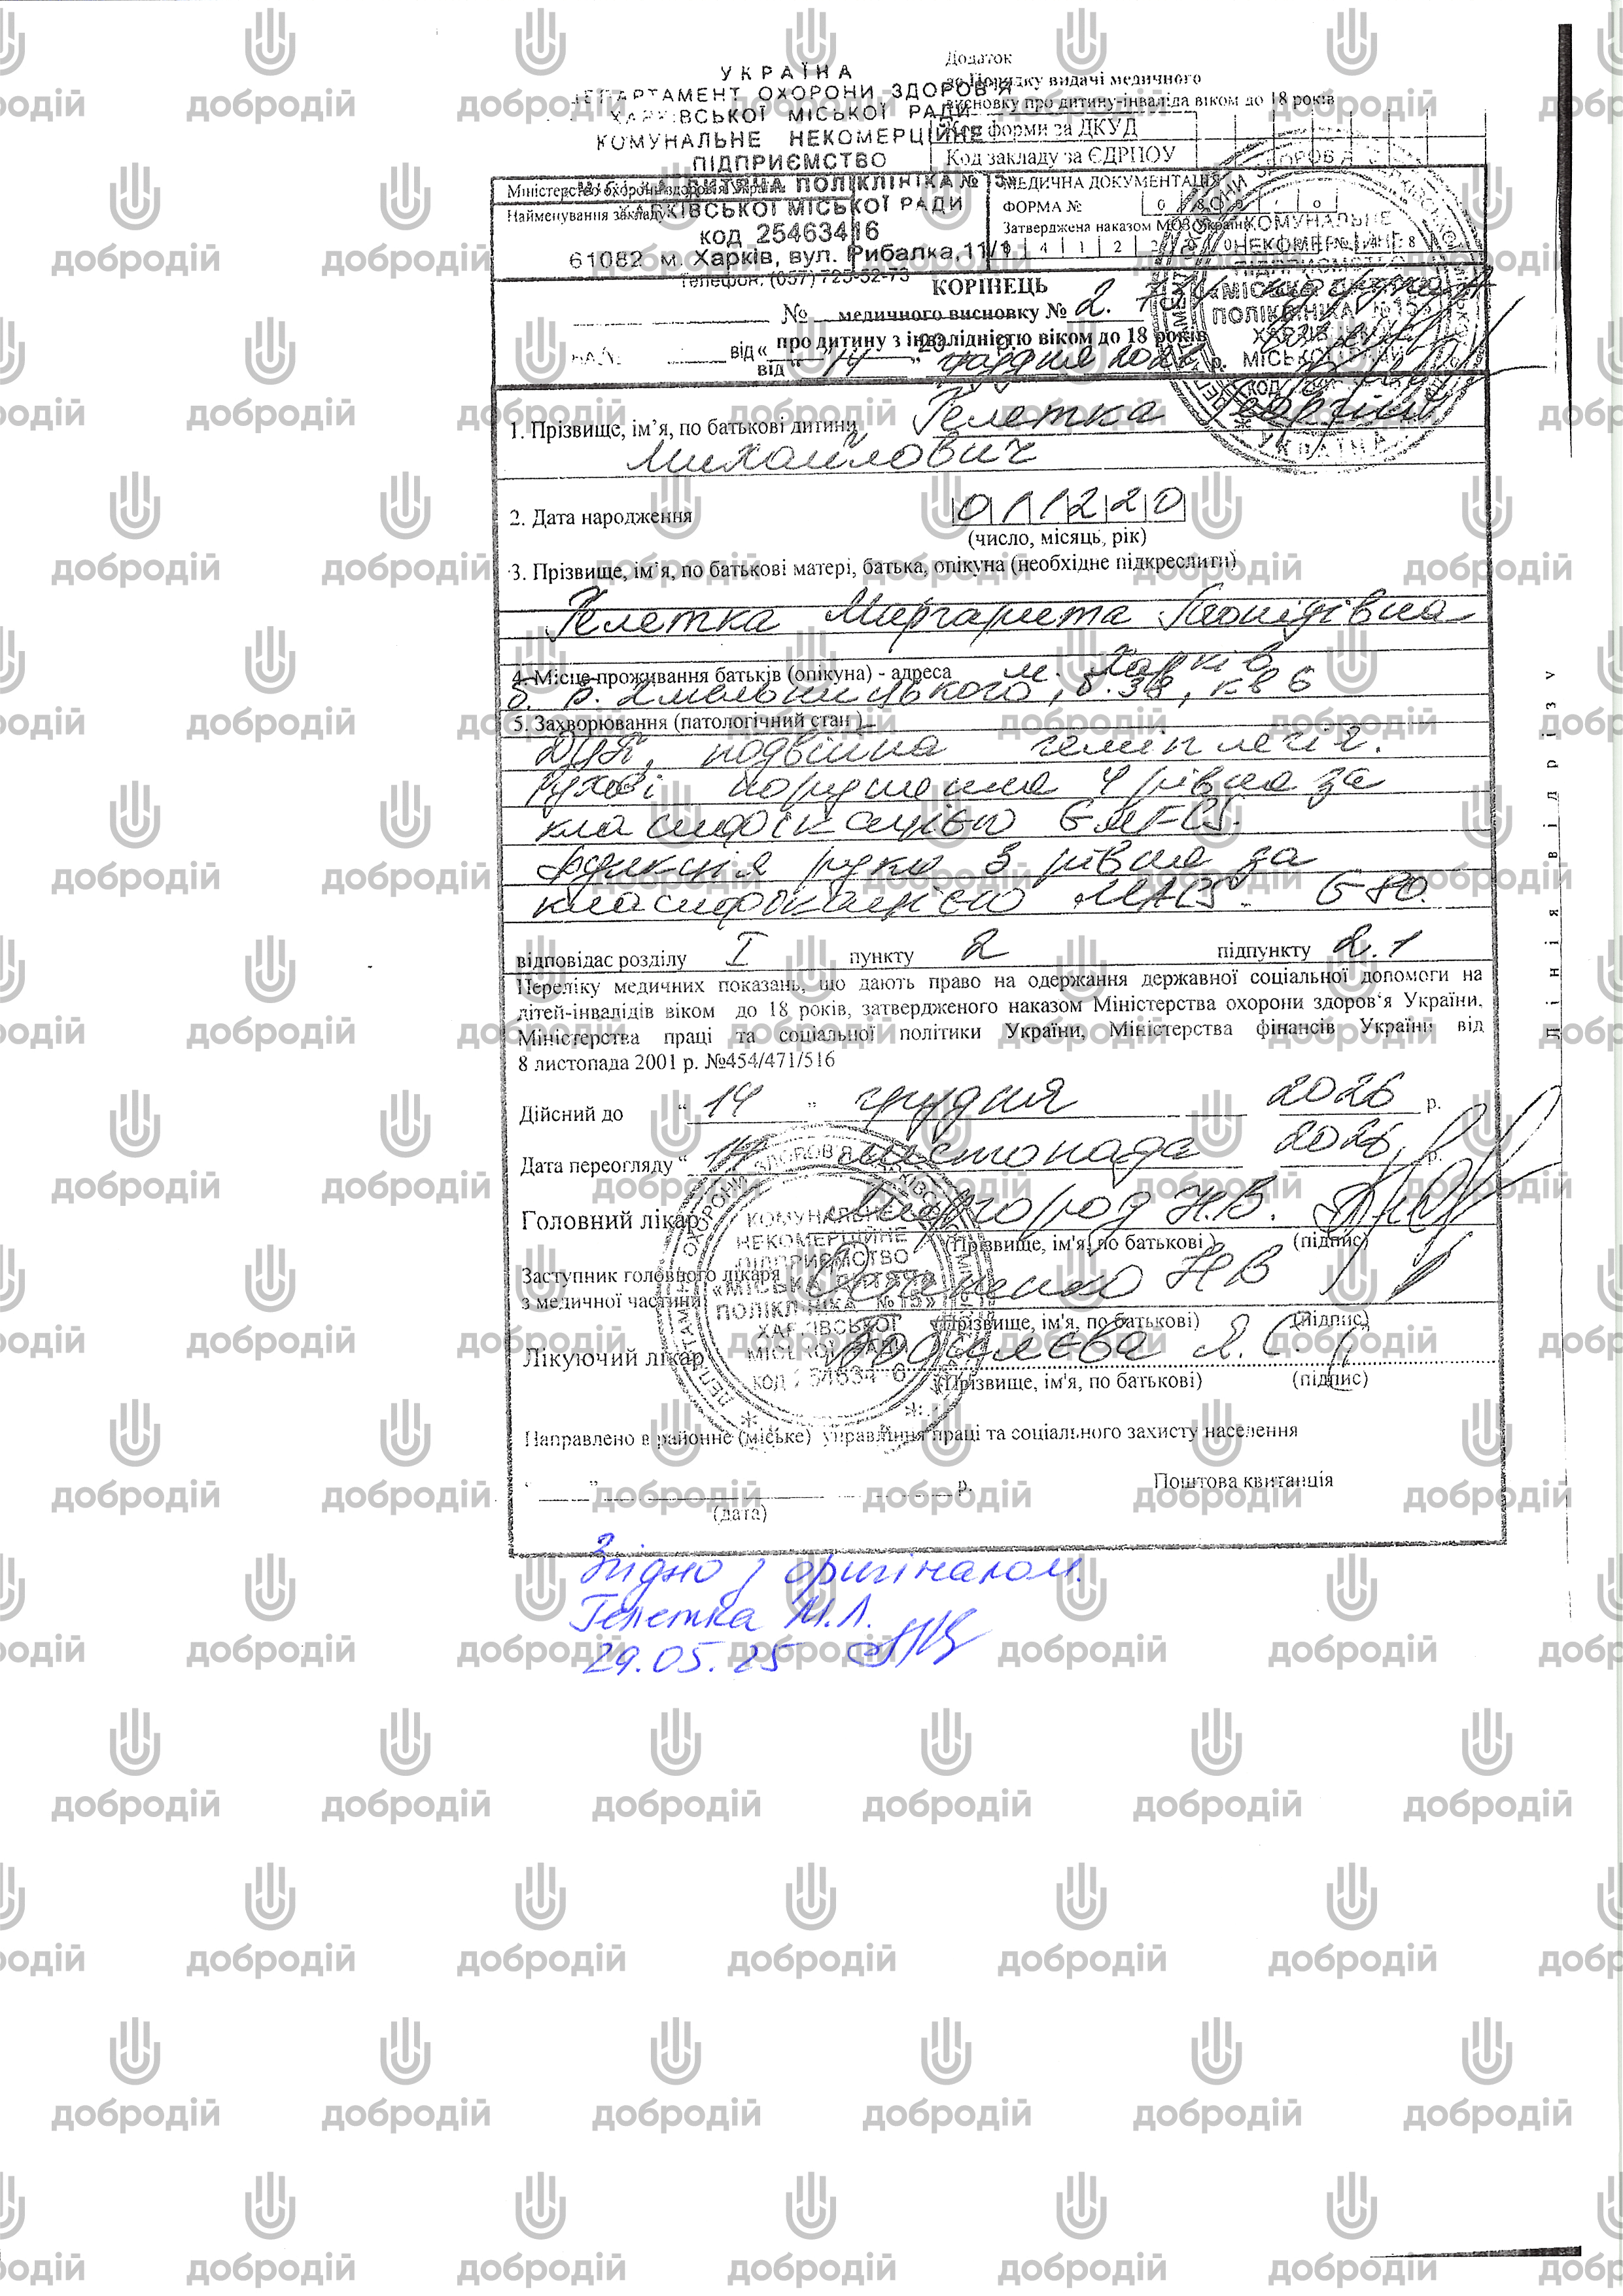 Додаток
до Порядку видачі медичного
висновку про дитину-інваліда віком до 18 років
УКРАЇНА
ДЕПАРТАМЕНТ ОХОРОНИ ЗДОРОВ'Я
ХАРКІВСЬКОЇ МІСЬКОЇ РАДИ
КОМУНАЛЬНЕ НЕКОМЕРЦІЙНЕ
ПІДПРИЄМСТВО
ДИТЯЧА ПОЛІКЛІНІКА № 15»
ХАРКІВСЬКОЇ МІСЬКОЇ РАДИ
код 25463416
61082 м. Харків, вул. Рибалка, 11/1
телефон: (057) 725-52-73
форми за ДКУД
Код закладу за ЄДРПОУ
Міністерство охорони здоров'я України
Найменування закладу
МЕДИЧНА ДОКУМЕНТАЦІЯ
ФОРМА №
Затверджена наказом МОЗ України
КОРІНЕЦЬ
№ медичного висновку № 2.
про дитину з інвалідністю віком до 18 років
від « 14 » грудня
1. Прізвище, ім’я, по батькові дитини Гелетка Георгій
Михайлович
2. Дата народження 011220
(число, місяць, рік)
3. Прізвище, ім’я, по батькові матері, батька, опікуна (необхідне підкреслити)
Гелетка Маргарита Леонідівна
4. Місце проживання батьків (опікуна) - адреса м. Харків
б. Б. Хмельницького, б. 38, кв 6
5. Захворювання (патологічний стан)
ДЦП, подвійна геміплегія.
Рухові порушення 4 рівня за
класифікацією GMFCS.
Функція руки 3 рівня за
класифікацією MACS. G 80.
відповідає розділу I пункту 2 підпункту 2.1
Переліку медичних показань, що дають право на одержання державної соціальної допомоги на
дітей-інвалідів віком до 18 років, затвердженого наказом Міністерства охорони здоров‘я України,
Міністерства праці та соціальної політики України, Міністерства фінансів України від
8 листопада 2001 р. №454/471/516
Дійсний до “ 14 ” грудня 2026 р.
Дата переогляду “ 14 листопада 2026 р.
Головний лікар Н.В.
(Прізвище, ім'я, по батькові) (підпис)
Заступник головного лікаря
з медичної частини Н В
(Прізвище, ім'я, по батькові) (підпис)
Лікуючий лікар Я.С.
(Прізвище, ім'я, по батькові) (підпис)
КОМУНАЛЬНЕ
НЕКОМЕРЦІЙНЕ
ПІДПРИЄМСТВО
«МІСЬКА ДИТЯЧА
ПОЛІКЛІНІКА №15»
ХАРКІВСЬКОЇ
МІСЬКОЇ РАДИ
код 25463416
Направлено в районне (міське) управління праці та соціального захисту населення
“ ” р. Поштова квитанція
(дата)
Лінія відрізу
Згідно з оригіналом.
Гелетка М.Л.
29.05.25
добродій